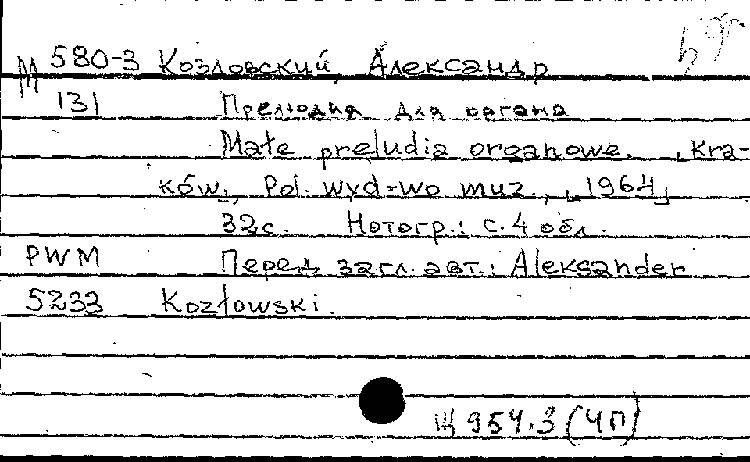 М 580-3 Козловский, Александр
131 Прелюдия для органа
Małe preludia organowe. Kra-
ków, Pol. wyd-wo muz., [1964]
32с. Нотогр.: с. 4 обл.
PWM Перед загл. авт.: Aleksander
5233 Kozłowski.
Щ 954.3 (4П)